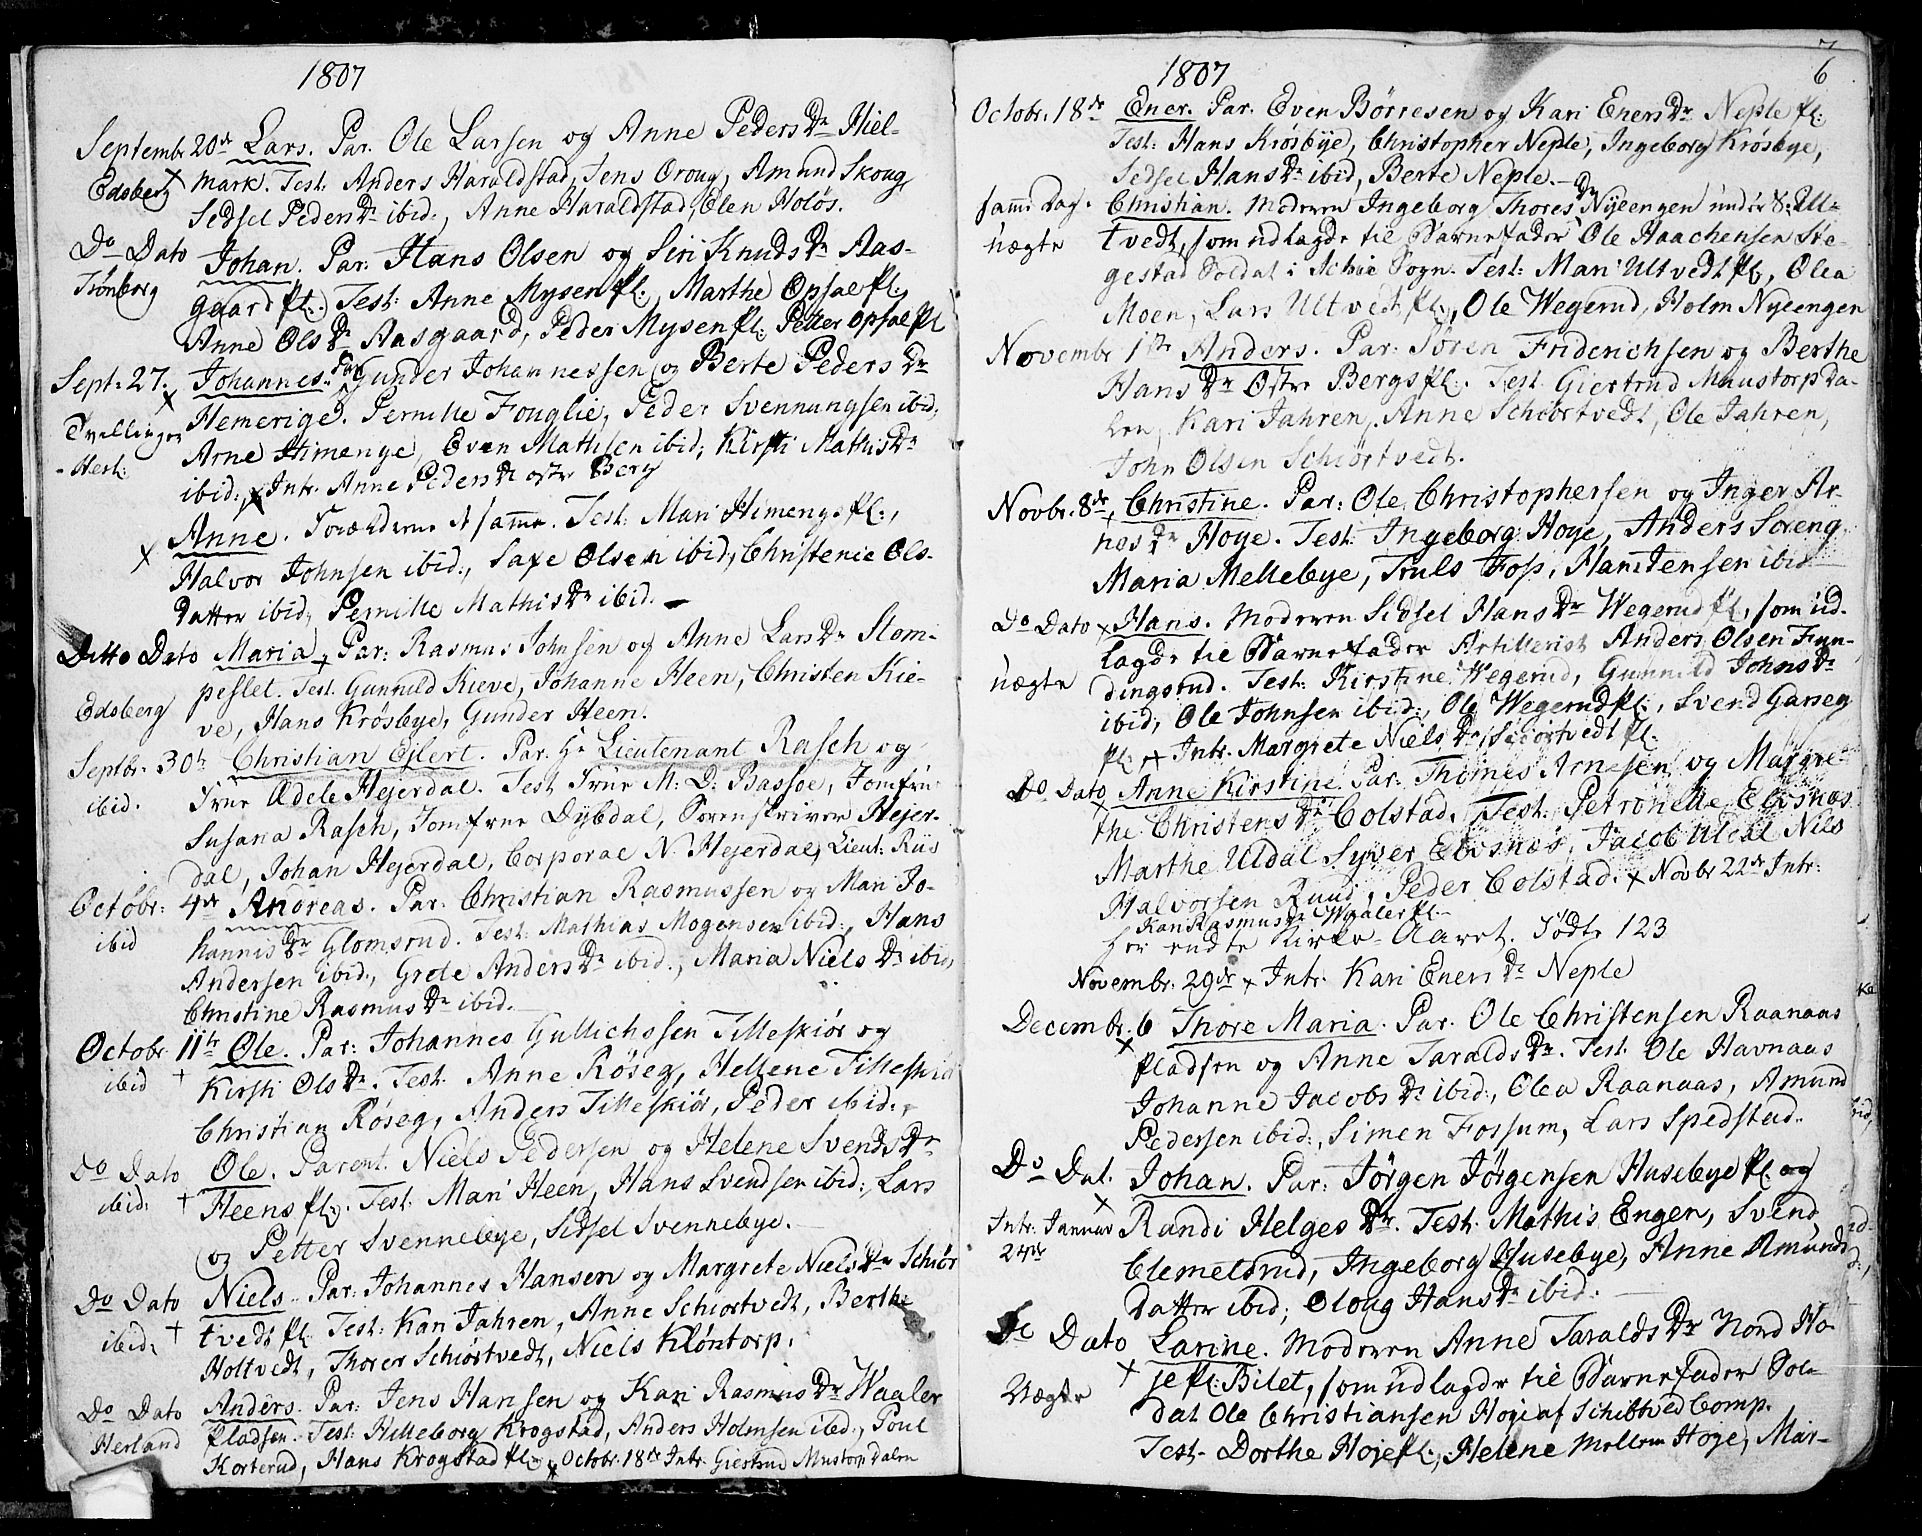 1807
Septembr 20de Lars. Par. Ole Larsen og Anne Peders Dr Hiel-
Edsberg mark. Test: Anders Haraldstad, Jens Oroug, Amund Skoug,
Sidsel Peders Dr ibid., Anne Haraldstad, Elen Holøs.
Do Dato Johan. Par: Hans Olsen og Siri Knuds Dr Aas-
Trønborg gaard pl.) Test: Anne Mysen pl:, Marthe Opsal pl:,
Anne Ols Dr Aasgaard, Peder Mysen pl: Petter Opsal pl
Sept: 27. Johannes. Par Gunder Johannessen og Berte Peders Dr
x Hemerige. Pernille Fouglie, Peder Svennungsen ibid,
Tvellinger Arne Himenge, Even Mathisen ibid; Kirsti Mathis Dr
- Herl: ibid:, x Intr. Anne Peders Dr østr Berg
Anne. Forældrene de samme. Test: Mari Himenge pl:,
x Halvor Johnsen ibid:, Saxe Olsen ibid:, Christenie Ols-
datter ibid; Pernille Mathis Dr ibid. -
Ditto Dato Maria. Par: Rasmus Johnsen og Anne Lars Dr Slom-
peslet. Test. Gunnild Kieve, Johanne Heen, Christen Kie-
Edsberg ve, Hans Krøsbye, Gunder Heen.
Septbr. 30te Christian Eilert. Par. Hr Lieutenant Rasch og
ibid. Frue Adele Hejerdal. Test Frue M: D: Bassøe, Jomfru
Susana Rasch, Jomfrue Dybdal, Sorenskriver Hejer-
dal, Johan Hejerdal, Corporal N. Hejerdal, Lieut: Riis
Octobr: 4de Andreas. Par: Christian Rasmussen og Mari Jo-
ibid hannis Dr Glomsrud. Test: Mathias Mogensen ibid:, Hans
Andersen ibid:, Grete Anders Dr ibid:, Maria Niels Dr ibid,
Christine Rasmus Dr ibid.
Octobr. 11te Ole. Par: Johannes Gullichssen Tilleskiør og
ibid † Kirsti Ols Dr. Test: Anne Røseg, Hellene Tilleskiør
Christian Røseg, Anders Tilleskiør, Peder ibid.
Do Dato Ole. Parent. Niels Pedersen og Helene Svends Dr
ibid: † Heens pl:). Test: Mari Heen, Hans Svendsen ibid:, Lars
og Petter Svennebye, Sidsel Svennebye.
Do Dato Niels. Par: Johannes Hansen og Margrete Niels Dr Schiør
ibid: † tvedt pl: Test: Kari Jahren, Anne Schiørtvedt, Berthe
Holtvedt, Thorer Schiørtvedt, Niels Kløntorp.
Do Dato Anders. Par: Jens Hansen og Kari Rasmus Dr Waaler
Herland pladsen. Test: Hilleborg Krogstad, Anders Holmsen ibid:, Poul
Korterud, Hans Krogstad pl: x Octobr. 18de Intr. Giertrud Mustorp Dalen
1807
7
6
Octobr. 18de Ener. Par. Even Børresen og Kari Eners Dr Neple pl:
Test: Hans Krøsbye, Christopher Neple, Ingeborg Krøsbye,
Sidsel Hans Dr ibid, Berte Neple. -
samme Dag. Christian. Moderen Ingeborg Thores Dr Nyeengen under S: Ul-
uægte tvedt, som udlagde til Barnefader Ole Haachensen Ste-
gestad Soldat i Schie Sogn. Test: Mari Ultvedt pl, Olea
Moen, Lars Ultvedt pl:, Ole Wegerud, Holm Nyeengen
Novembr 1ste Anders. Par: Søren Friderichsen og Berthe
Hans Dr Østre Bergs pl:. Test. Giertrud Maustorp Da-
len, Kari Jahren, Anne Schiørtvedt, Ole Jahren,
John Olsen Schiørtvedt.
Novbr. 8de, Christine. Par: Ole Christophersen og Inger Ar-
nes Dr Hoye. Test: Ingeborg Hoye, Anders Soreng
Maria Mellebye, Truls Foss, Hans Jensen ibid
Do Dato x Hans. Moderen Sidsel Hans Dr Wegerud pl, som ud-
lagde til Barnefader Artillerist Anders Olsen Fun-
uægte dingsrud. Test: Kirstine Wegerud, Gunnild Johns Dr
ibid; Ole Johnsen ibid:, Ole Wegerud pl:, Svend Garseg
pl: x Intr. Margrete Niels Dr Schiørtvedt pl.
Do Dato Anne Kirstine. Par: Thomes Arnesen og Margre-
x the Christens Dr Colstad. Test: Petronelle Elvsnøs
Marthe Uldal Syver Elvsnøs, Jacob Uldal Nils
Halvorsen Ruud, Peder Colstad. x Novbr 22de Intr:
Kari Rasmus Dr Waaler pl.
Her endte Kirke-Aaret. Født 123
Novembr. 29de x Intr. Kari Eners Dr Neple
Decembr. 6 Thore Maria. Par. Ole Christensen Raanaas
x pladsen og Anne Taralds Dr. Test: Ole Havnaas
Johanne Jacobs Dr ibid:, Olea Raanaas, Amund
Pedersen ibid:, Simen Fossum, Lars Spedstad.
Do Dat. Johan. Par: Jørgen Jørgensen Husebye pl: og
x Intr. Januar Randi Helges Dr. Test: Mathis Engen, Svend
24de Clemetsrud, Ingeborg Husebye, Anne Amunds
datter ibid; Oloug Hans Dr ibid.
Do Dato Larine. Moderen Anne Taralds Dr Nord Ho-
† je pl: Bilet, som udlagde til Barnefader Sol-
Uægte dat Ole Christiansen Hoje af Schibtved Comp.
Test. Dorthe Hoje pl:, Helene Mellem Hoye, Mar-